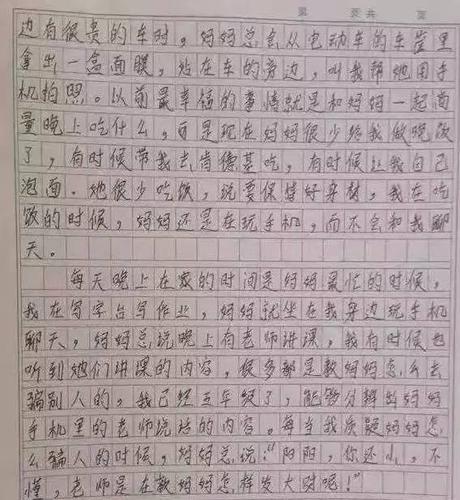 第 页共 页
边有很贵的车时，妈妈总会从电动车的车筐里
拿出一盒面膜，站在车的旁边，叫我帮她用手
机拍照。以前最幸福的事情就是和妈妈一起商
量晚上吃什么，可是现在妈妈很少给我做晚饭
了，有时候带我去肯德基吃，有时候让我自己
泡面。她很少吃饭，说要保持好身材，我在吃
饭的时候，妈妈还是在玩手机，而不会和我聊
天。
每天晚上在家的时间是妈妈最忙的时候，
我在写字台写作业，妈妈就坐在我身边玩手机
聊天，妈妈总说晚上有老师讲课，我有时候也
听到她们讲课的内容，很多都是教妈妈怎么去
骗别人的，我已经五年级了，能够分辨出妈妈
手机里的老师说话的内容。每当我质疑妈妈怎
么骗人的时候，妈妈总说：“阳阳，你还小，不
懂，老师是在教妈妈怎样发大财呢！”